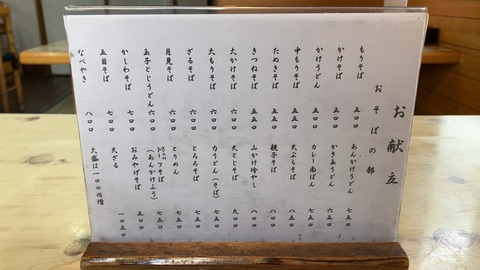 お献立
おそばの部
もりそば 五〇〇
かけそば 五〇〇
かけうどん 五〇〇
中もりそば 五五〇
たぬきそば 五五〇
きつねそば 五五〇
大かけそば 六〇〇
大もりそば 六〇〇
ざるそば 六〇〇
月見そば 六〇〇
玉子とじうどん 六〇〇
かしわそば 七〇〇
五目そば 七〇〇
なべやき 八〇〇
あんかけうどん 七五〇
かき玉うどん 六五〇
カレー南ばん 七五〇
天ぷらそば 八五〇
親子そば 八〇〇
山かけ冷やし 八〇〇
天とじそば 九〇〇
力うどん(そば) 七五〇
とろろそば 七五〇
とりめん 七五〇
そば(あんかけふう) 七五〇
おみやげそば 五五〇
天ざる 一〇五〇
大盛は一〇〇円増